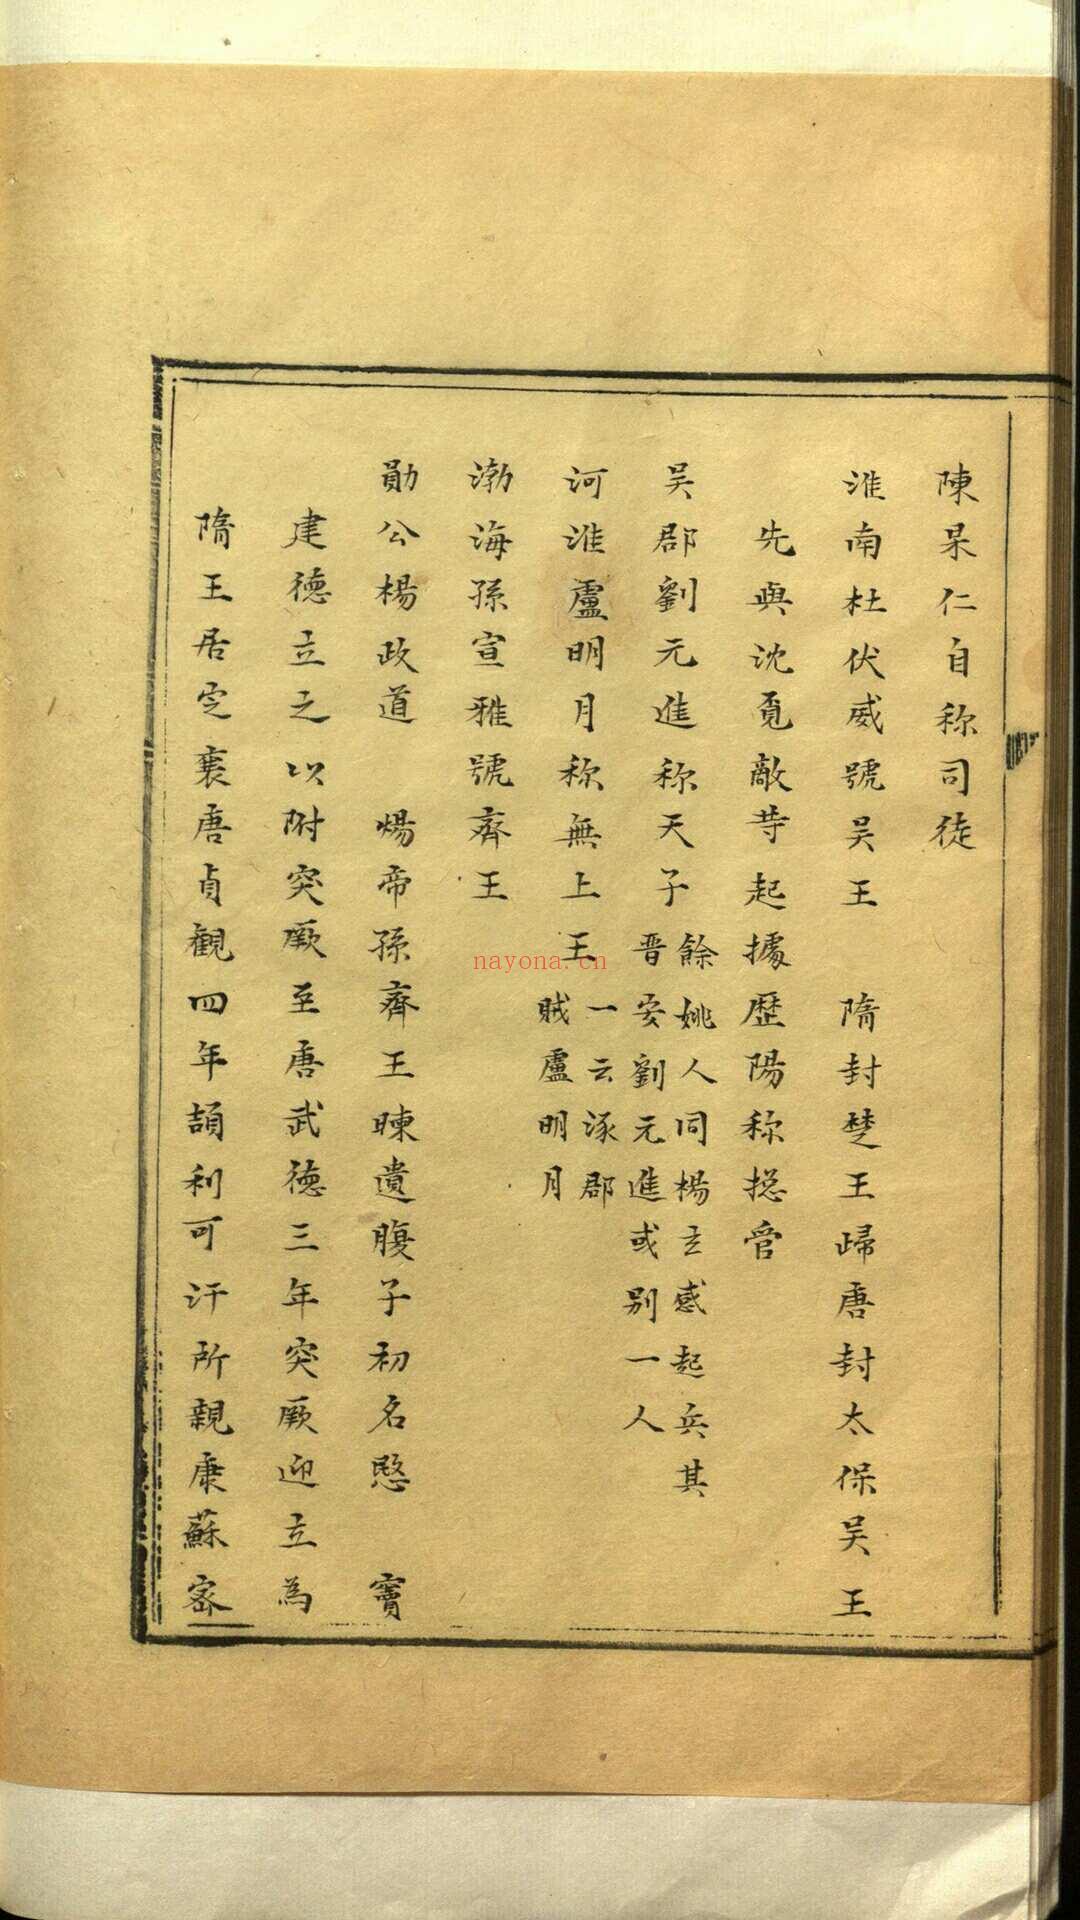 陳杲仁自称司徒
淮南杜伏威號吴王　隋封楚王歸唐封太保吴王
先與沈覔敵等起據歷陽称揔管
吴郡劉元進称天子　餘姚人同楊玄感起兵其
晋安劉元進或别一人
河淮盧明月称無上王　一云涿郡
賊盧明月
渤海孫宣雅號齊王
勛公楊政道　煬帝孫齊王暕遺腹子初名愍　竇
建德立之以附突厥至唐武德三年突厥迎立為
隋王居定襄唐貞觀四年頡利可汗所親康蘇宻
nayona.cn